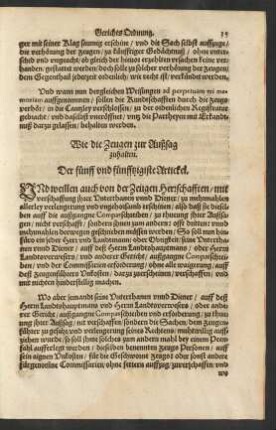 Gerichts Ordnung. 15
ger mit seiner Klag saumig erschine / vnd die Sach selbst auffzuge /
die verhörung der zeugen / zu künfftiger Gedächtnuß / ohne
vnd vngeacht / ob gleich der hieuor erzehlten vrsachen keine ver-
handen: gestattet werden: doch solle zu solcher verhörung der zeugen /
dem Gegenthail jederzeit ordenlich / wie recht ist / verkündet werden.
Vnd wann nun dergleichen Weisungen ad perpetuam rei me-
moriam auffgenommen / sollen die Kundschafften durch die zeugs
verhör / in die Cantzley verschlossen / bey der ordenlichen Registratur
gebracht / vnd daselbst vneröffnet / vntz die Partheyen mit Erkandt-
nuß darzu gelassen / behalten werden.
Wie die Zeugen zur Außsag
zuhalten.
Der fünff vnd fünfftzigiste Artickel.
VNd weillen auch von der Zeugen Herrschafften / mit
verschaffung jhrer Vnterthanen vnnd Diener / zu mehrmahlen
allerley verlengerung vnd vngehorsamb erscheinen / also daß sie die-
selben auff die außgangne Compaßschreiben / zu thuung jhrer Auß-
sagen / nicht verschaffen / sondern jhnen zum andern / offt zum dritten / vnd
mehrmahlen zugeschriben werden müssen. So soll nun hin-
für ein jeder Herr vnd Landtmann / oder Obrigkeit / seine Vntertha-
nen vnnd Diener / auff deß Herrn Landtshauptmans / oder Herrn
Landtsverwesers / vnd anderer Gericht / außgangne Compaßschrei-
ben / vnd der Commissarien erforderung / ohne alle waigerung / auff
deß Zeugensführers Vnkosten / darzu / verschaffen / vnd mit
nichten hinderstellig machen.
Wo aber jemandt seine Vnterthanen vnnd Diener / auff deß
Herrn Landtshauptmans vnd Herrn Landtsverwesers / oder ande-
rer Gericht / außgangne Compaßschreiben vnd erforderung / zu thu-
ung jhrer Außsag / net verschaffen / sondern die Sachen / dem Zeugen-
führer zu gefahr vnd verlengerung seines Rechtens / muthwillig auff-
ziehen wurde / so soll jhme solches zum andern mahl bey einem Peen-
fahl aufferlegt werden / dieselben benennten zeugen Personen / auff
sein eignen Vnkosten / für die Geschworne Zeugs oder sonst andere
fürgenomne Commissarien / ohne fertern auffzug / zuverschaffen / vnd